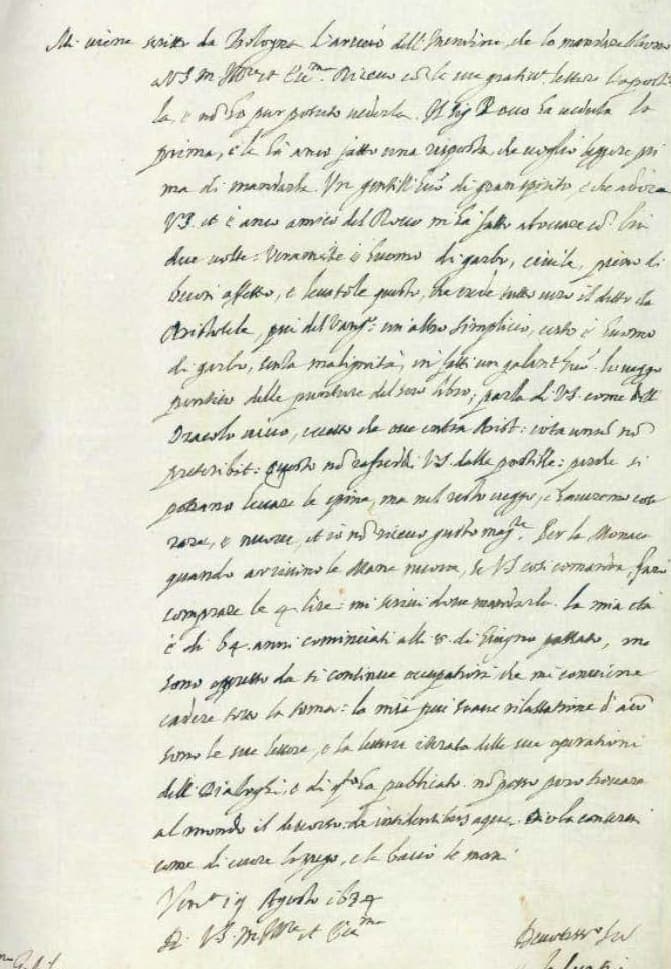 Mi viene scritto da Bologna l'arrivo dell' de lo mandare
a VS m Ill.re et Ecc.ma Ricevo con le sue gratis.me lettere la postil
la, e nõ ho pur potuto vederla. Il Sig Rocco ha veduta la
prima, e le ha anco fatto una risposta, che voglio leggere pri
ma di mandarla. Un gentil'huõ di gran spirito, e che adora
VS. et è anco amico del Rocco m'ha fatto abocare cõ lui
due volte. Veramẽte è huomo di garbo, civile, pieno di
buon affetto, e levatole questo, che crede tutto vero il detto da
Aristotele, piu del Vang.o: un'altro Simplicio, certo è huomo
di garbo, senza malignità, in fatti un galant'huõ. lo veggo
pentito delle punture del suo libro, parla di VS. come dell'
Oracolo vivo, eccetto che ove contra Arist: nõ
preteribit: questo nõ raffreddi VS. dalle postille: perche si
potrano levare le spine, ma nel resto veggo, che haveremo cose
rare, e nuove, et io nõ ricevo gusto magre. Per la Monaca
quando arrivino le Mane nuova, se VS cosi comanda, farò
comprare le 4. lire: mi scrivi dove mandarle. la mia età
è di 64. anni cominciati alli 8. di Giugno passato, ma
sono oppresso da si continue occupationi, che mi conviene
cadere sotto la soma: la mia piu soave rilassatione d'aõ
sono le sue lettere, e la lettura iterata delle sue operationi
delli Dialoghi, e di qto ha publicato. nõ posso pero trovare
al mondo il discorso de insidentibus aquae. Dio la conservi
come di cuore la prego, e le bacio le mani.
Ven.a 19 Agosto 1634
Di VS. m Ill.re et Ecc.ma
Devotiss.o Ser